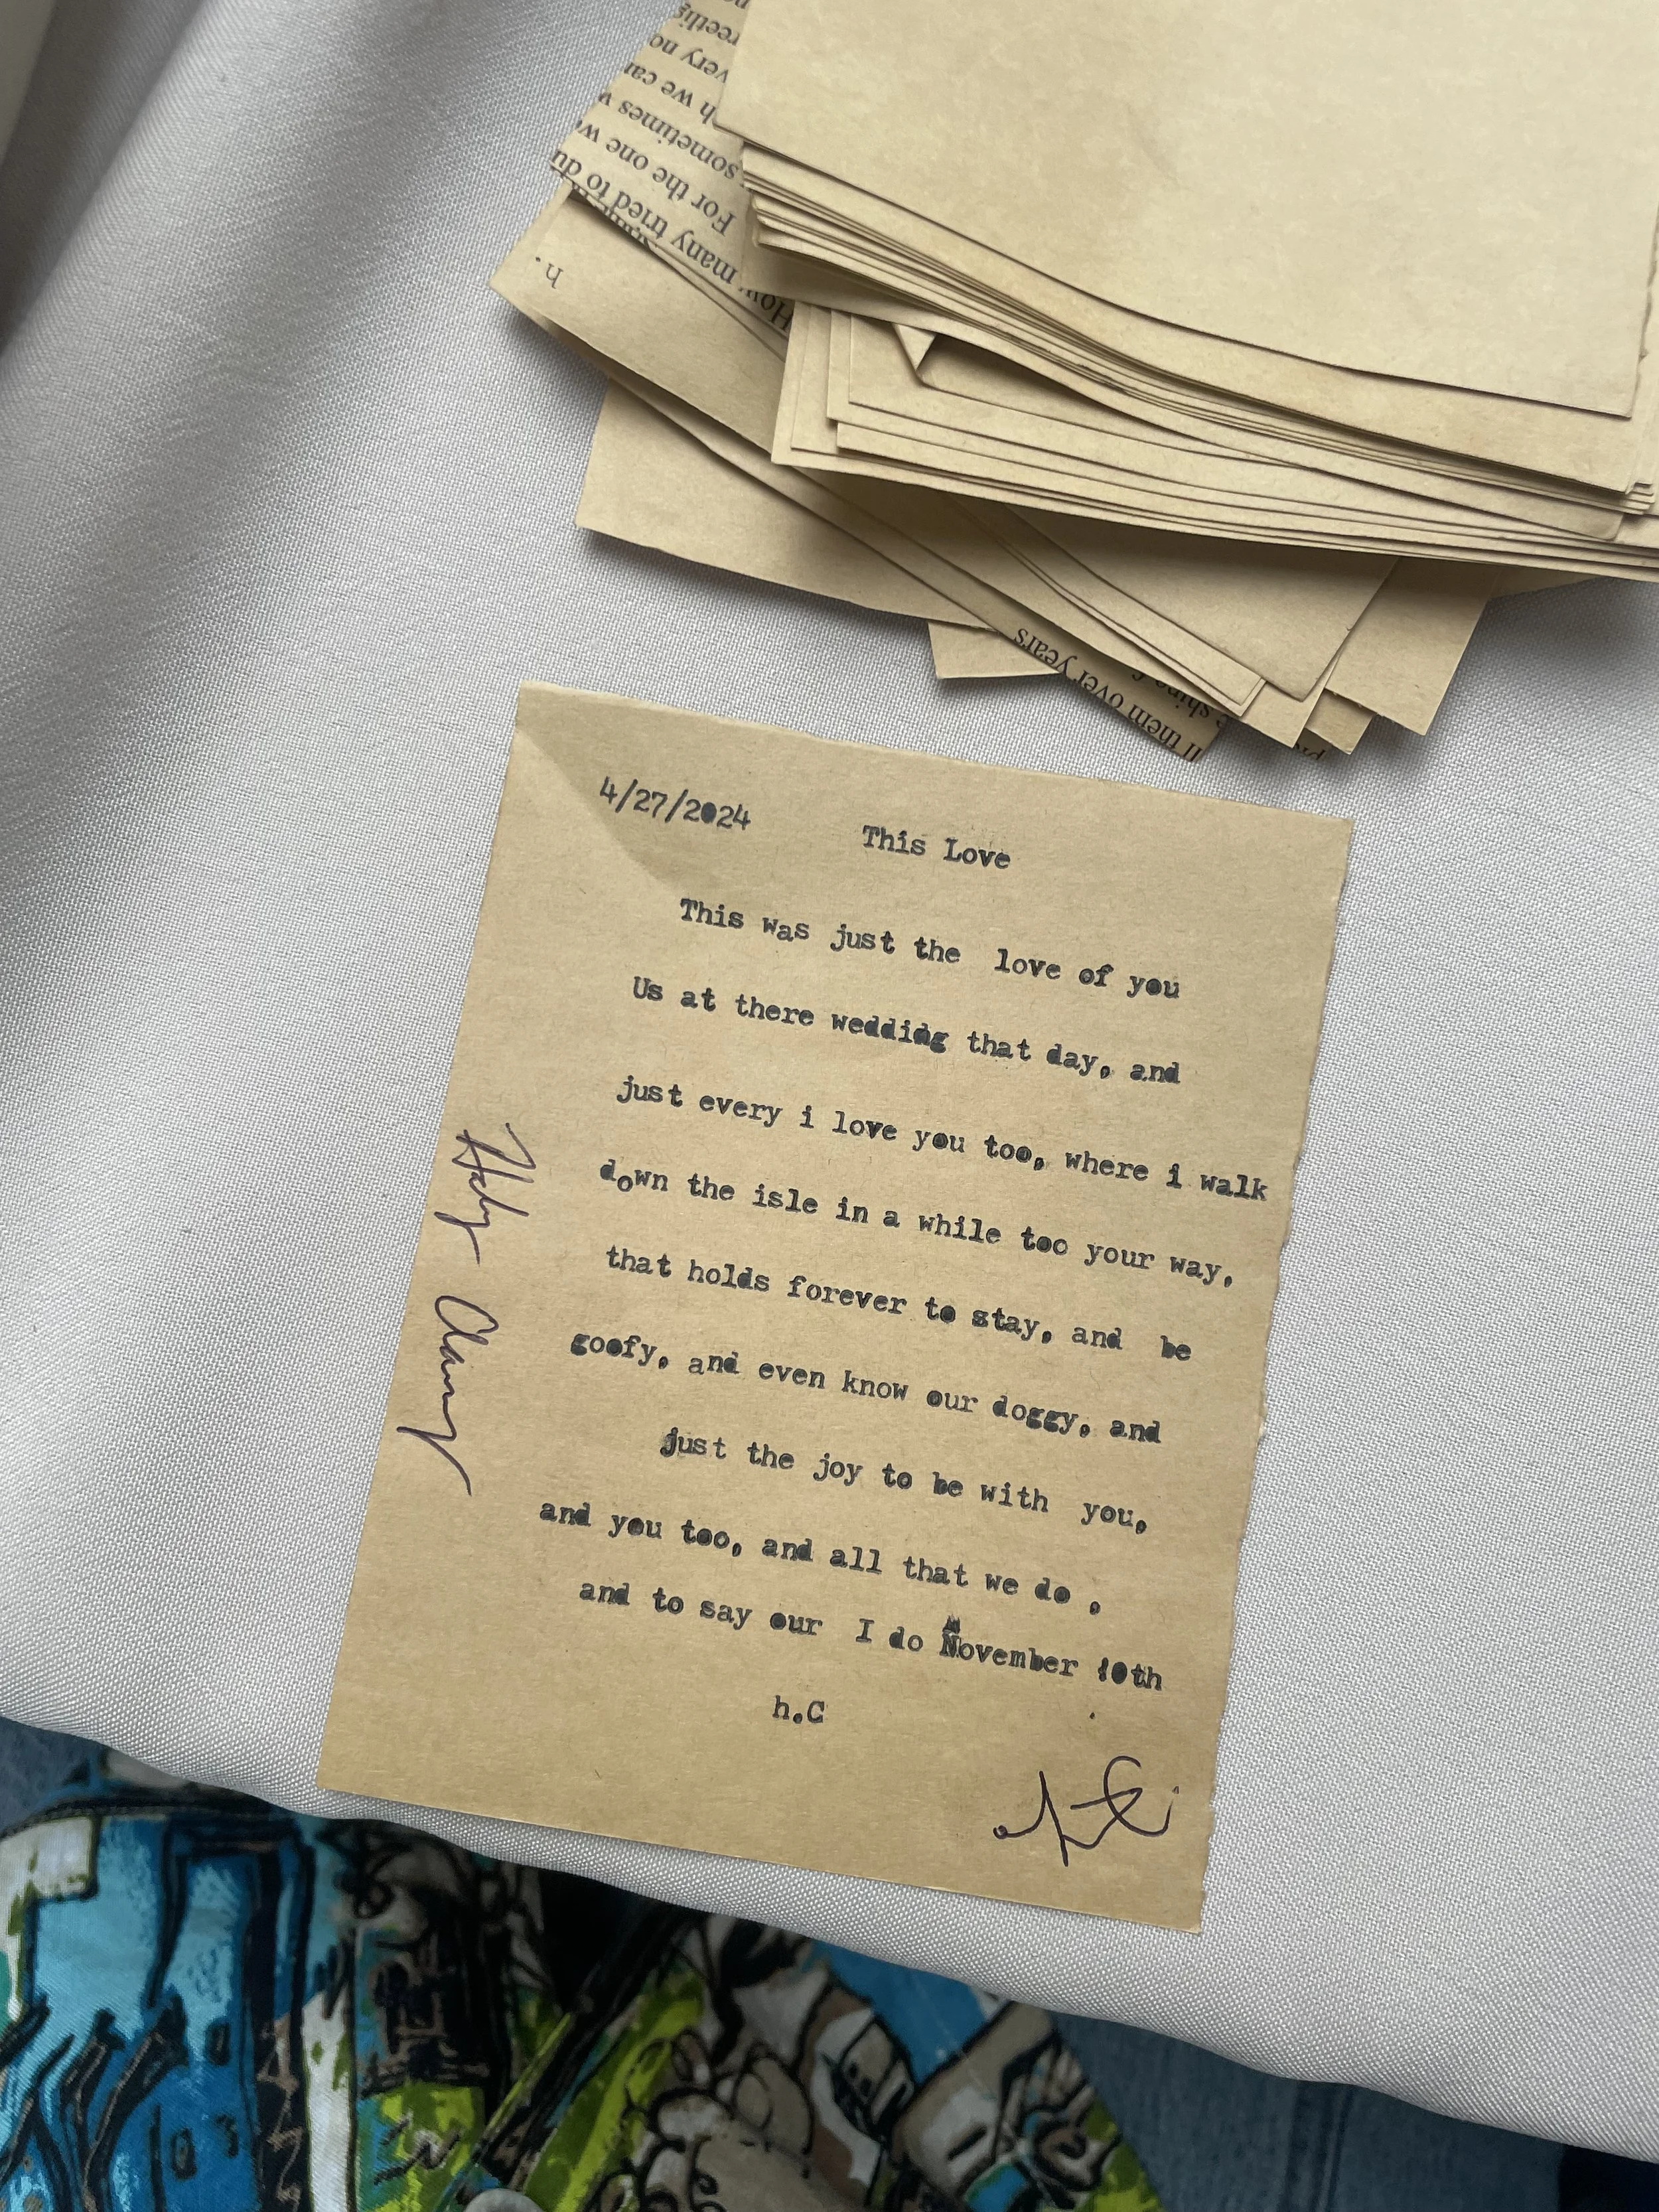 reetlig
very no
h we can
sometimes
For the one we
many tried to du
How
h.
ll them over years
e shine
4/27/2024
This Love
This was just the love of you
Us at there wedding that day, and
just every i love you too, where i walk
down the isle in a while too your way,
that holds forever to stay, and be
goofy, and even know our doggy, and
just the joy to be with you,
and you too, and all that we do ,
and to say our I do November 10th
h.C